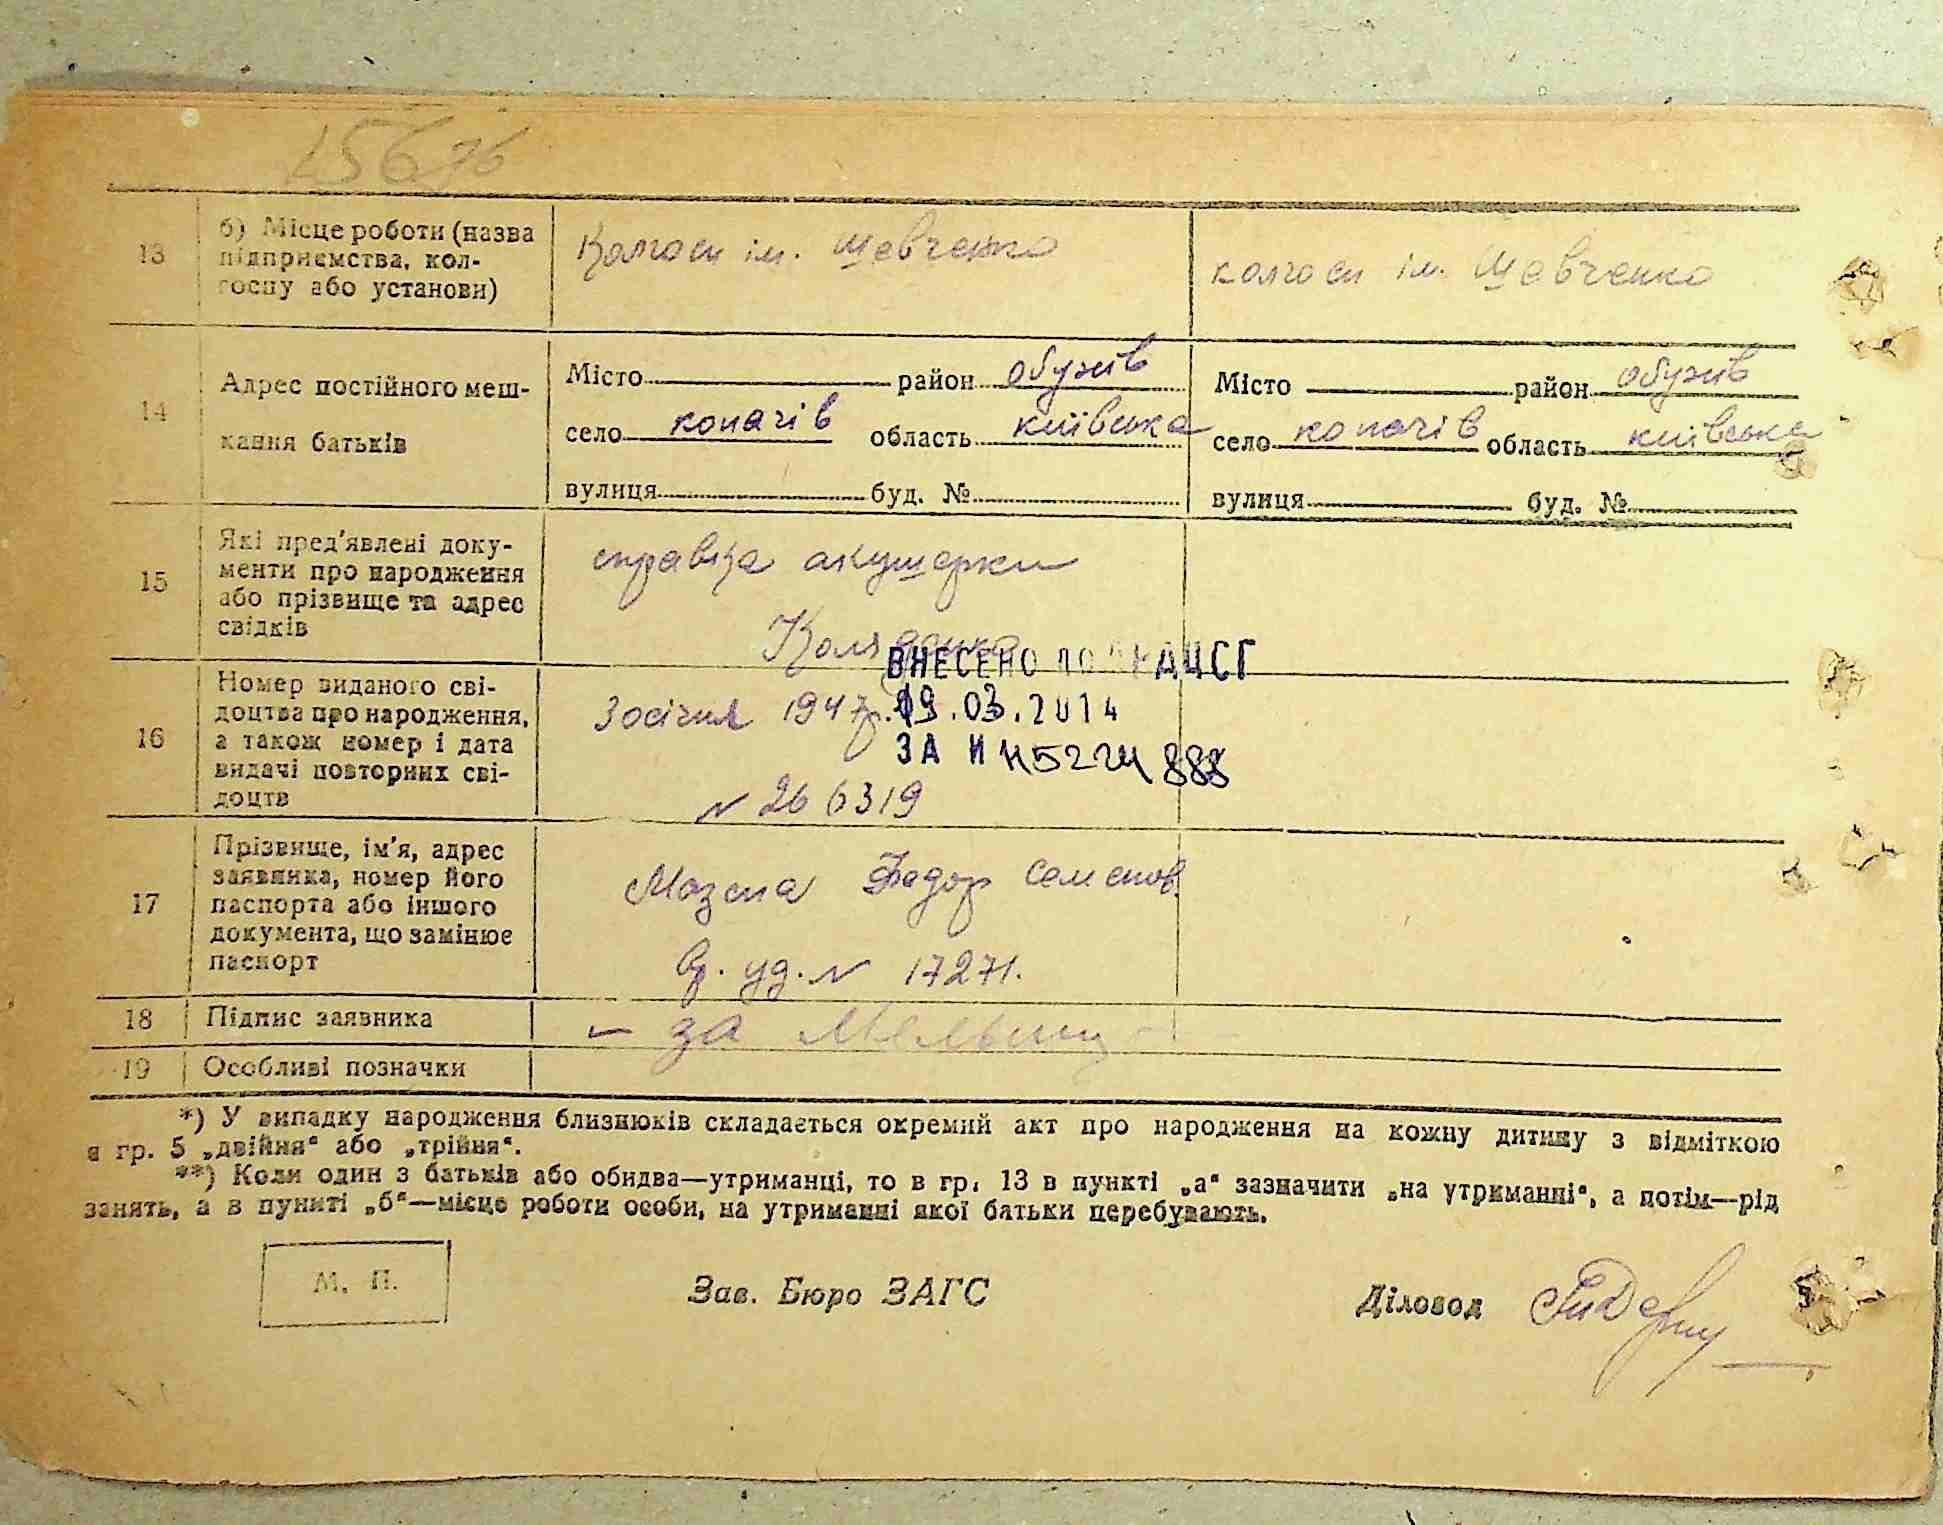 13 б) Місце роботи (назва підприємства, кол-
госпу або установи)
Колгосп ім. Шевченко
колгосп ім. Шевченко
14 Адрес постійного меш-
кання батьків
Місто район Обухів
село копачів область київська
вулиця буд. №
Місто район Обухів
село копачів область київська
вулиця буд. №
15 Які пред'явлені доку-
менти про народження
або прізвище та адрес
свідків
справка акушерки
16 Номер виданого сві-
доцтва про народження,
а також номер і дата
видачі повторних сві-
доцтв
30 січня 1947 р.
N 266319
ВНЕСЕНО ДО ДРАЦСГ
19.03.2014
ЗА N
17 Прізвище, ім'я, адрес
заявника, номер його
паспорта або іншого
документа, що замінює
паспорт
Мазепа Федор Семенов.
уд. N 17271.
18 Підпис заявника
за
19 Особливі позначки
*) У випадку народження близнюків складається окремий акт про народження на кожну дитину з відміткою
в гр. 5 „двійня“ або „трійня“.
**) Коли один з батьків або обидва—утриманці, то в гр. 13 в пункті „а“ зазначити „на утриманні“, а потім—рід
занять, а в пункті „б“—місце роботи особи, на утриманні якої батьки перебувають.
М. П.
Зав. Бюро ЗАГС
Діловод